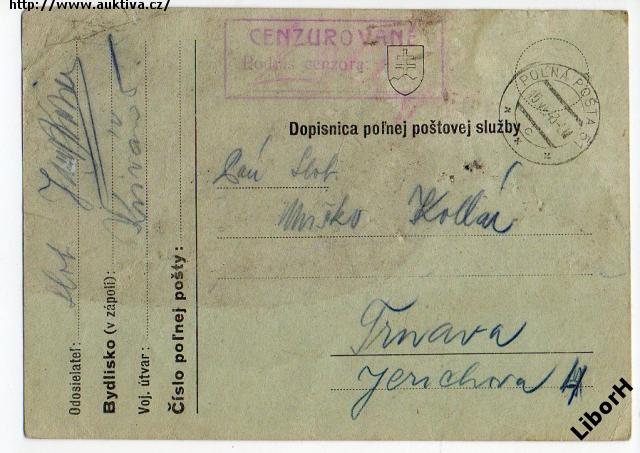 http://www.auktiva.cz/
CENZUROVANÉ
Podpis cenzora:
POĽNÁ POŠTA 51
C
Dopisnica poľnej poštovej služby
Pán Slob.
Miško Kollár
Trnava
Jerichova
Odosielateľ: Slob.
Bydlisko (v zápolí):
Voj. útvar:
Číslo poľnej pošty:
LiborH